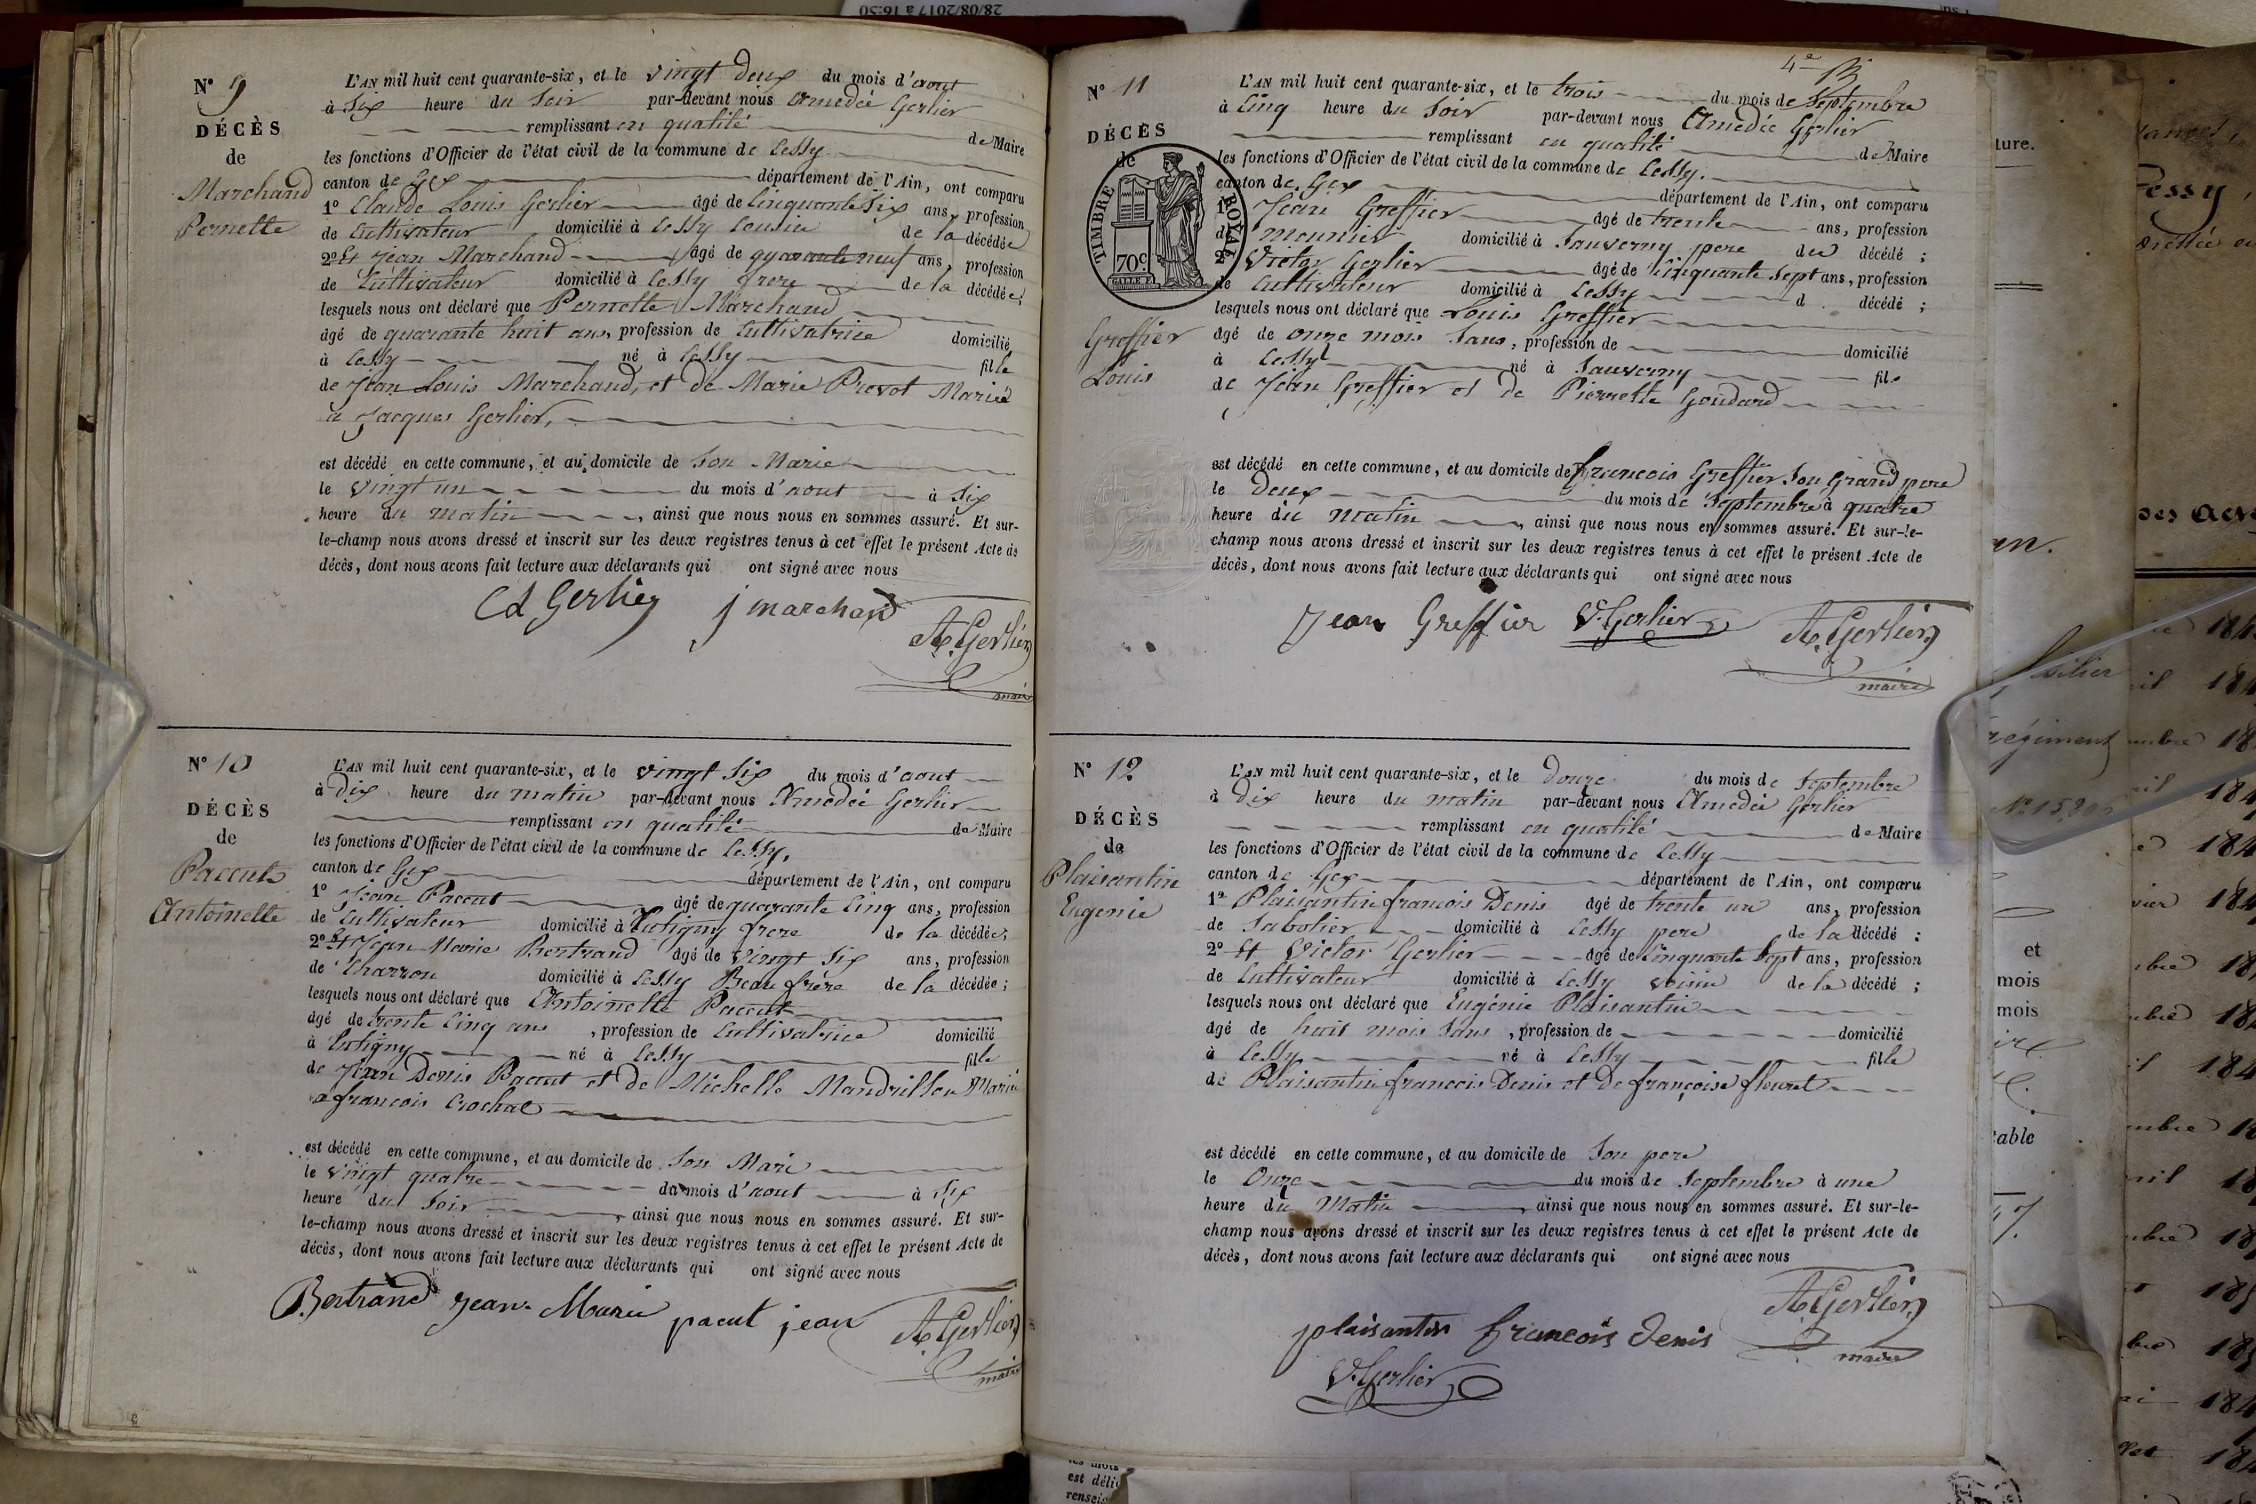 28/08/2017 à 16:50
N° 9
DÉCÈS
de
Marchand
Pernette
L'AN mil huit cent quarante-six, et le vingt deux du mois d'aout
à Six heure du Soir par-devant nous Amedée Gerlier
remplissant en qualité de Maire
les fonctions d'Officier de l'état civil de la commune de Cessy
canton de Gex département de l'Ain, ont comparu
1° Claude Louis Gerlier âgé de Cinquante Six ans, profession
de Cultivateur domicilié à Cessy Cousin de la décédée
2° Et Jean Marchand âgé de quarante neuf ans, profession
de Cultivateur domicilié à Cessy frere de la décédée;
lesquels nous ont déclaré que Pernette Marchand
âgé de quarante huit ans, profession de Cultivatrice domicilié
à Cessy né à Cessy fille
de Jean Louis Marchand, et de Marie Prevot Mariée
a Jacques Gerlier,
est décédé en cette commune, et au domicile de Son Marie
le vingt un du mois d'aout à Six
heure du matin, ainsi que nous nous en sommes assuré. Et sur-
le-champ nous avons dressé et inscrit sur les deux registres tenus à cet effet le présent Acte de
décès, dont nous avons fait lecture aux déclarants qui ont signé avec nous
Cd Gerlier j marchand
A. Gerlier
maire
N° 10
DÉCÈS
de
Pacout
Antoinette
L'AN mil huit cent quarante-six, et le vingt Six du mois d'aout
à Dix heure du matin par-devant nous Amedée Gerlier
remplissant en qualité de Maire
les fonctions d'Officier de l'état civil de la commune de Cessy,
canton de Gex département de l'Ain, ont comparu
1° Jean Pacout âgé de quarante Cinq ans, profession
de Cultivateur domicilié à frere de la décédée;
2° Et Jean Marie Bertrand âgé de vingt Six ans, profession
de Charron domicilié à Cessy Beau frère de la décédée;
lesquels nous ont déclaré que Antoinette Pacout
âgé de trente Cinq ans, profession de Cultivatrice domicilié
à né à Cessy fille
de Jean Denis Pacout et de Michelle Mandrillon Marié
a francois Crochat
est décédé en cette commune, et au domicile de Son Mari
le vingt quatre du mois d'aout à Six
heure du Soir, ainsi que nous nous en sommes assuré. Et sur-
le-champ nous avons dressé et inscrit sur les deux registres tenus à cet effet le présent Acte de
décès, dont nous avons fait lecture aux déclarants qui ont signé avec nous
Bertrand Jean-Marie pacut jean A. Gerlier
maire
4e
N° 11
DÉCÈS
de
TIMBRE ROYAL
70c.
Greffier
Louis
L'AN mil huit cent quarante-six, et le trois du mois de Septembre
à Cinq heure du Soir par-devant nous Amedée Gerlier
remplissant en qualité de Maire
les fonctions d'Officier de l'état civil de la commune de Cessy.
canton de Gex département de l'Ain, ont comparu
1° Jean Greffier âgé de trente ans, profession
de meunier domicilié à Sauverny pere du décédé;
2° Victor Gerlier âgé de Cinquante Sept ans, profession
de Cultivateur domicilié à Cessy d décédé;
lesquels nous ont déclaré que Louis Greffier
âgé de onze mois Sans, profession de domicilié
à Cessy né à Sauverny fils
de Jean Greffier et de Pierrette Goudard
est décédé en cette commune, et au domicile de francois Greffier Son Grand pere
le Deux du mois de Septembre à quatre
heure du matin, ainsi que nous nous en sommes assuré. Et sur-le-
champ nous avons dressé et inscrit sur les deux registres tenus à cet effet le présent Acte de
décès, dont nous avons fait lecture aux déclarants qui ont signé avec nous
Jean Greffier V. Gerlier A. Gerlier
maire
N° 12
DÉCÈS
de
Plaisantin
Eugenie
L'AN mil huit cent quarante-six, et le Douze du mois de Septembre
à Dix heure du matin par-devant nous Amedée Gerlier
remplissant en qualité de Maire
les fonctions d'Officier de l'état civil de la commune de Cessy
canton de Gex département de l'Ain, ont comparu
1° Plaisantin francois Denis âgé de trente un ans, profession
de Sabotier domicilié à Cessy pere de la décédé;
2° Et Victor Gerlier âgé de Cinquante Sept ans, profession
de Cultivateur domicilié à Cessy voisin de la décédé;
lesquels nous ont déclaré que Eugénie Plaisantin
âgé de huit mois Sans, profession de domicilié
à Cessy né à Cessy fille
de Plaisantin francois Denis et de françoise fleuret
est décédé en cette commune, et au domicile de Son pere
le Onze du mois de Septembre à une
heure du Matin, ainsi que nous nous en sommes assuré. Et sur-le-
champ nous avons dressé et inscrit sur les deux registres tenus à cet effet le présent Acte de
décès, dont nous avons fait lecture aux déclarants qui ont signé avec nous
A. Gerlier
plaisantin francois denis maire
V. Gerlier
ture.
et
mois
mois
table
est déli